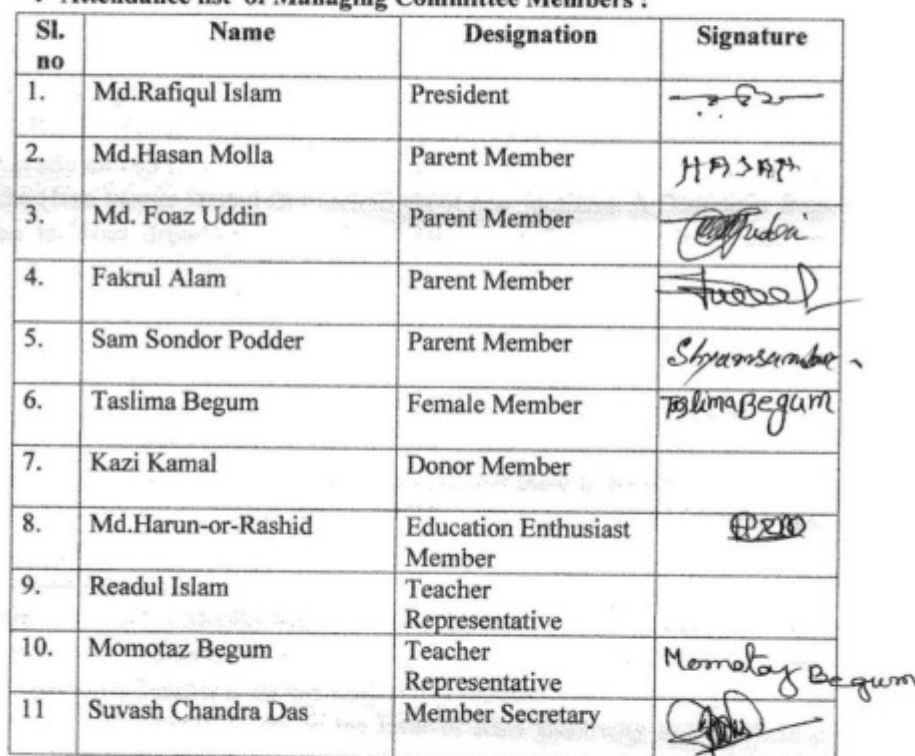 Attendance list of Managing Committee Members :
Sl. no Name Designation Signature
1. Md.Rafiqul Islam President
2. Md.Hasan Molla Parent Member HASAN
3. Md. Foaz Uddin Parent Member
4. Fakrul Alam Parent Member
5. Sam Sondor Podder Parent Member Shyamsundar
6. Taslima Begum Female Member Taslima Begum
7. Kazi Kamal Donor Member
8. Md.Harun-or-Rashid Education Enthusiast
Member
9. Readul Islam Teacher
Representative
10. Momotaz Begum Teacher
Representative Momotaz Begum
11 Suvash Chandra Das Member Secretary